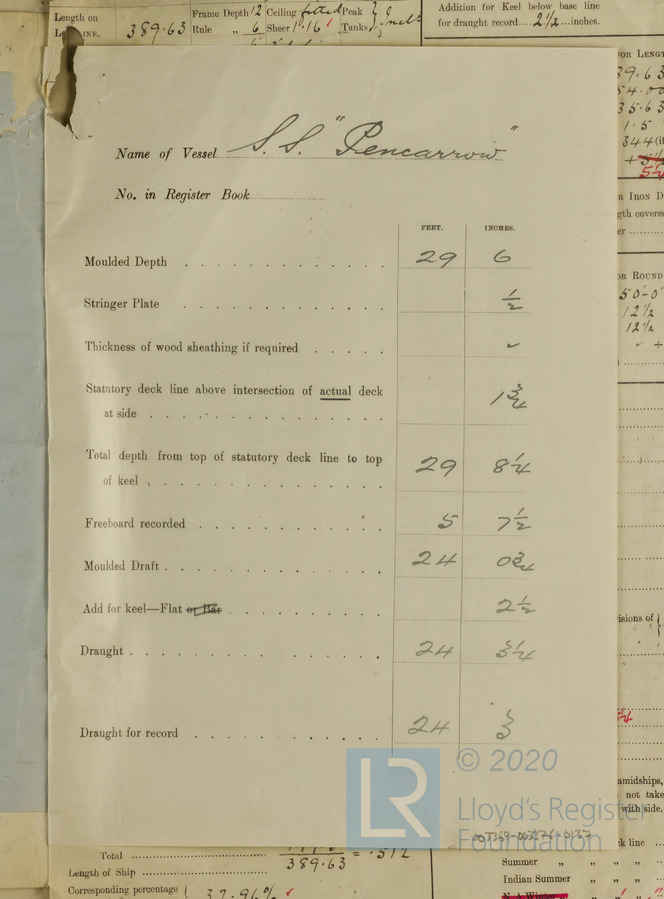 Length on
389.63
Frame Depth 12
Rule „ 6
Ceiling fitted
Sheer 1.16
Peak
Tanks
Addition for Keel below base line
for draught record.... 2½ ...inches.
Name of Vessel S.S. "Pencarrow"
No. in Register Book
FEET. INCHES.
Moulded Depth 29 6
Stringer Plate ½
Thickness of wood sheathing if required ✓
Statutory deck line above intersection of actual deck
at side 1¾
Total depth from top of statutory deck line to top
of keel 29 8¼
Freeboard recorded 5 7½
Moulded Draft 24 0¾
Add for keel—Flat or Bar 2½
Draught 24 3¼
Draught for record 24 3
© 2020
LR
Lloyd's Register
Foundation
003369-003376-0137
Total
389.63 = .512
Length of Ship
Corresponding percentage
37.96%
50'-0"
12½
12½
amidships,
not take
with side.
k line
Summer „ „ „ „
Indian Summer „ „ „
N.A. Winter